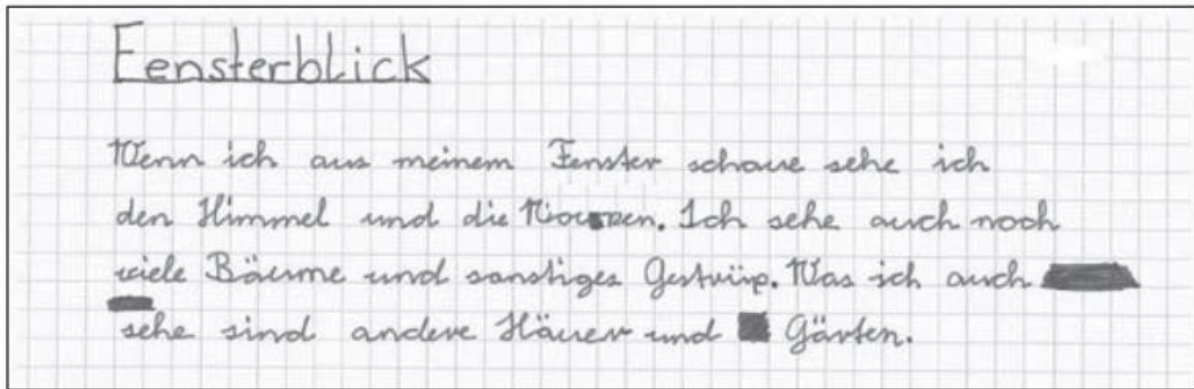 Fensterblick
Wenn ich aus meinem Fenster schaue sehe ich
den Himmel und die. Ich sehe auch noch
viele Bäume und sonstiges Gestrüp. Was ich auch
sehe sind andere Häuer und Gärten.